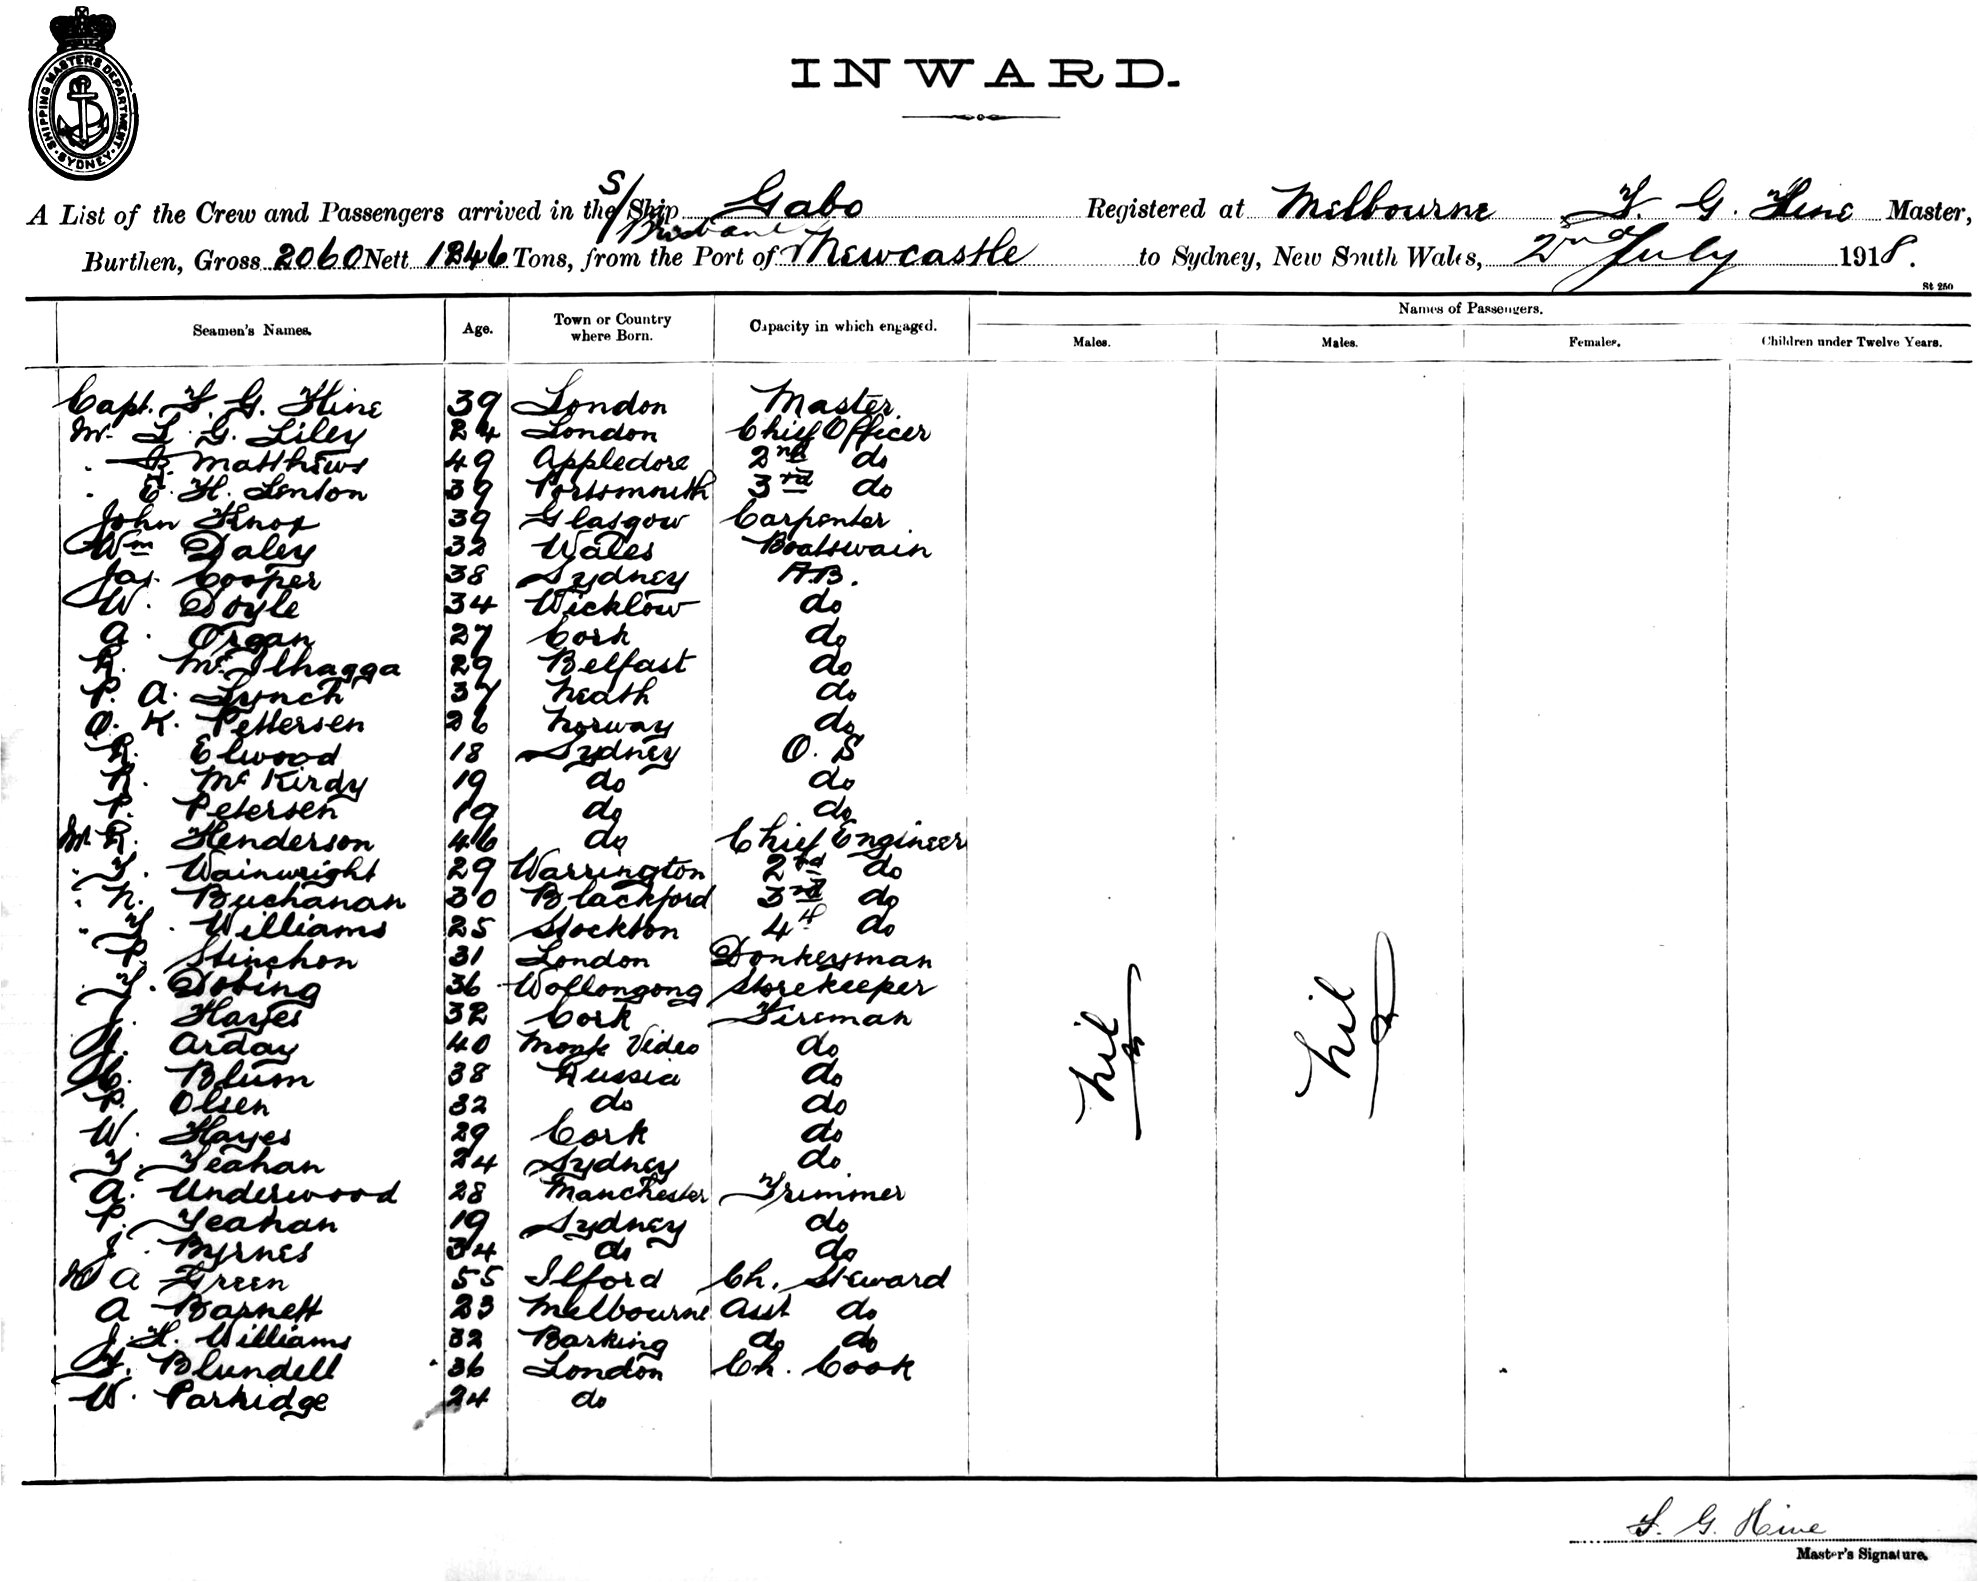 SHIPPING MASTERS DEPARTMENT. SYDNEY.
INWARD.
A List of the Crew and Passengers arrived in the S/Ship Gabo Registered at Melbourne F. G. Hine Master,
Brisbane
Burthen, Gross 2060 Nett 1246 Tons, from the Port of Newcastle to Sydney, New South Wales, 2nd July 1918.
St 250
Seamen's Names. Age. Town or Country where Born. Capacity in which engaged. Names of Passengers.
Males. Males. Females. Children under Twelve Years.
Capt. F. G. Hine 39 London Master
Mr. L. G. Liley 24 London Chief Officer
" Matthews 49 Appledore 2nd do
" E. H. Lenton 39 Portsmouth 3rd do
John Knox 39 Glasgow Carpenter
Wm Daley 32 Wales Boatswain
Jas. Cooper 38 Sydney A.B.
W. Doyle 34 Wicklow do
A. Organ 27 Cork do
R. McIlhagga 29 Belfast do
P. A. Lynch 37 Neath do
O. K. Pettersen 26 Norway do
R. Elwood 18 Sydney O. S
R. McKirdy 19 do do
P. Petersen 19 do do
Mr R. Henderson 46 do Chief Engineer
" T. Wainwright 29 Warrington 2nd do
" N. Buchanan 30 Blackford 3rd do
" T. Williams 25 Stockton 4th do
P. Stinchon 31 London Donkeyman
T. Dobing 36 Wollongong Storekeeper
J. Hayes 32 Cork Fireman
Arday 40 Monte Video do
C. Blum 38 Russia do
P. Olsen 32 do do
W. Hayes 29 Cork do
T. Feahan 24 Sydney do
A. Underwood 28 Manchester Trimmer
P. Feahan 19 Sydney do
J. Byrnes 34 do do
W A Green 55 Ilford Ch. Steward
A Barnett 23 Melbourne Asst do
J. H. Williams 32 Barking do do
F. Blundell 36 London Ch. Cook
W. Partridge 24 do
Nil
Nil
F. G. Hine
Master's Signature.